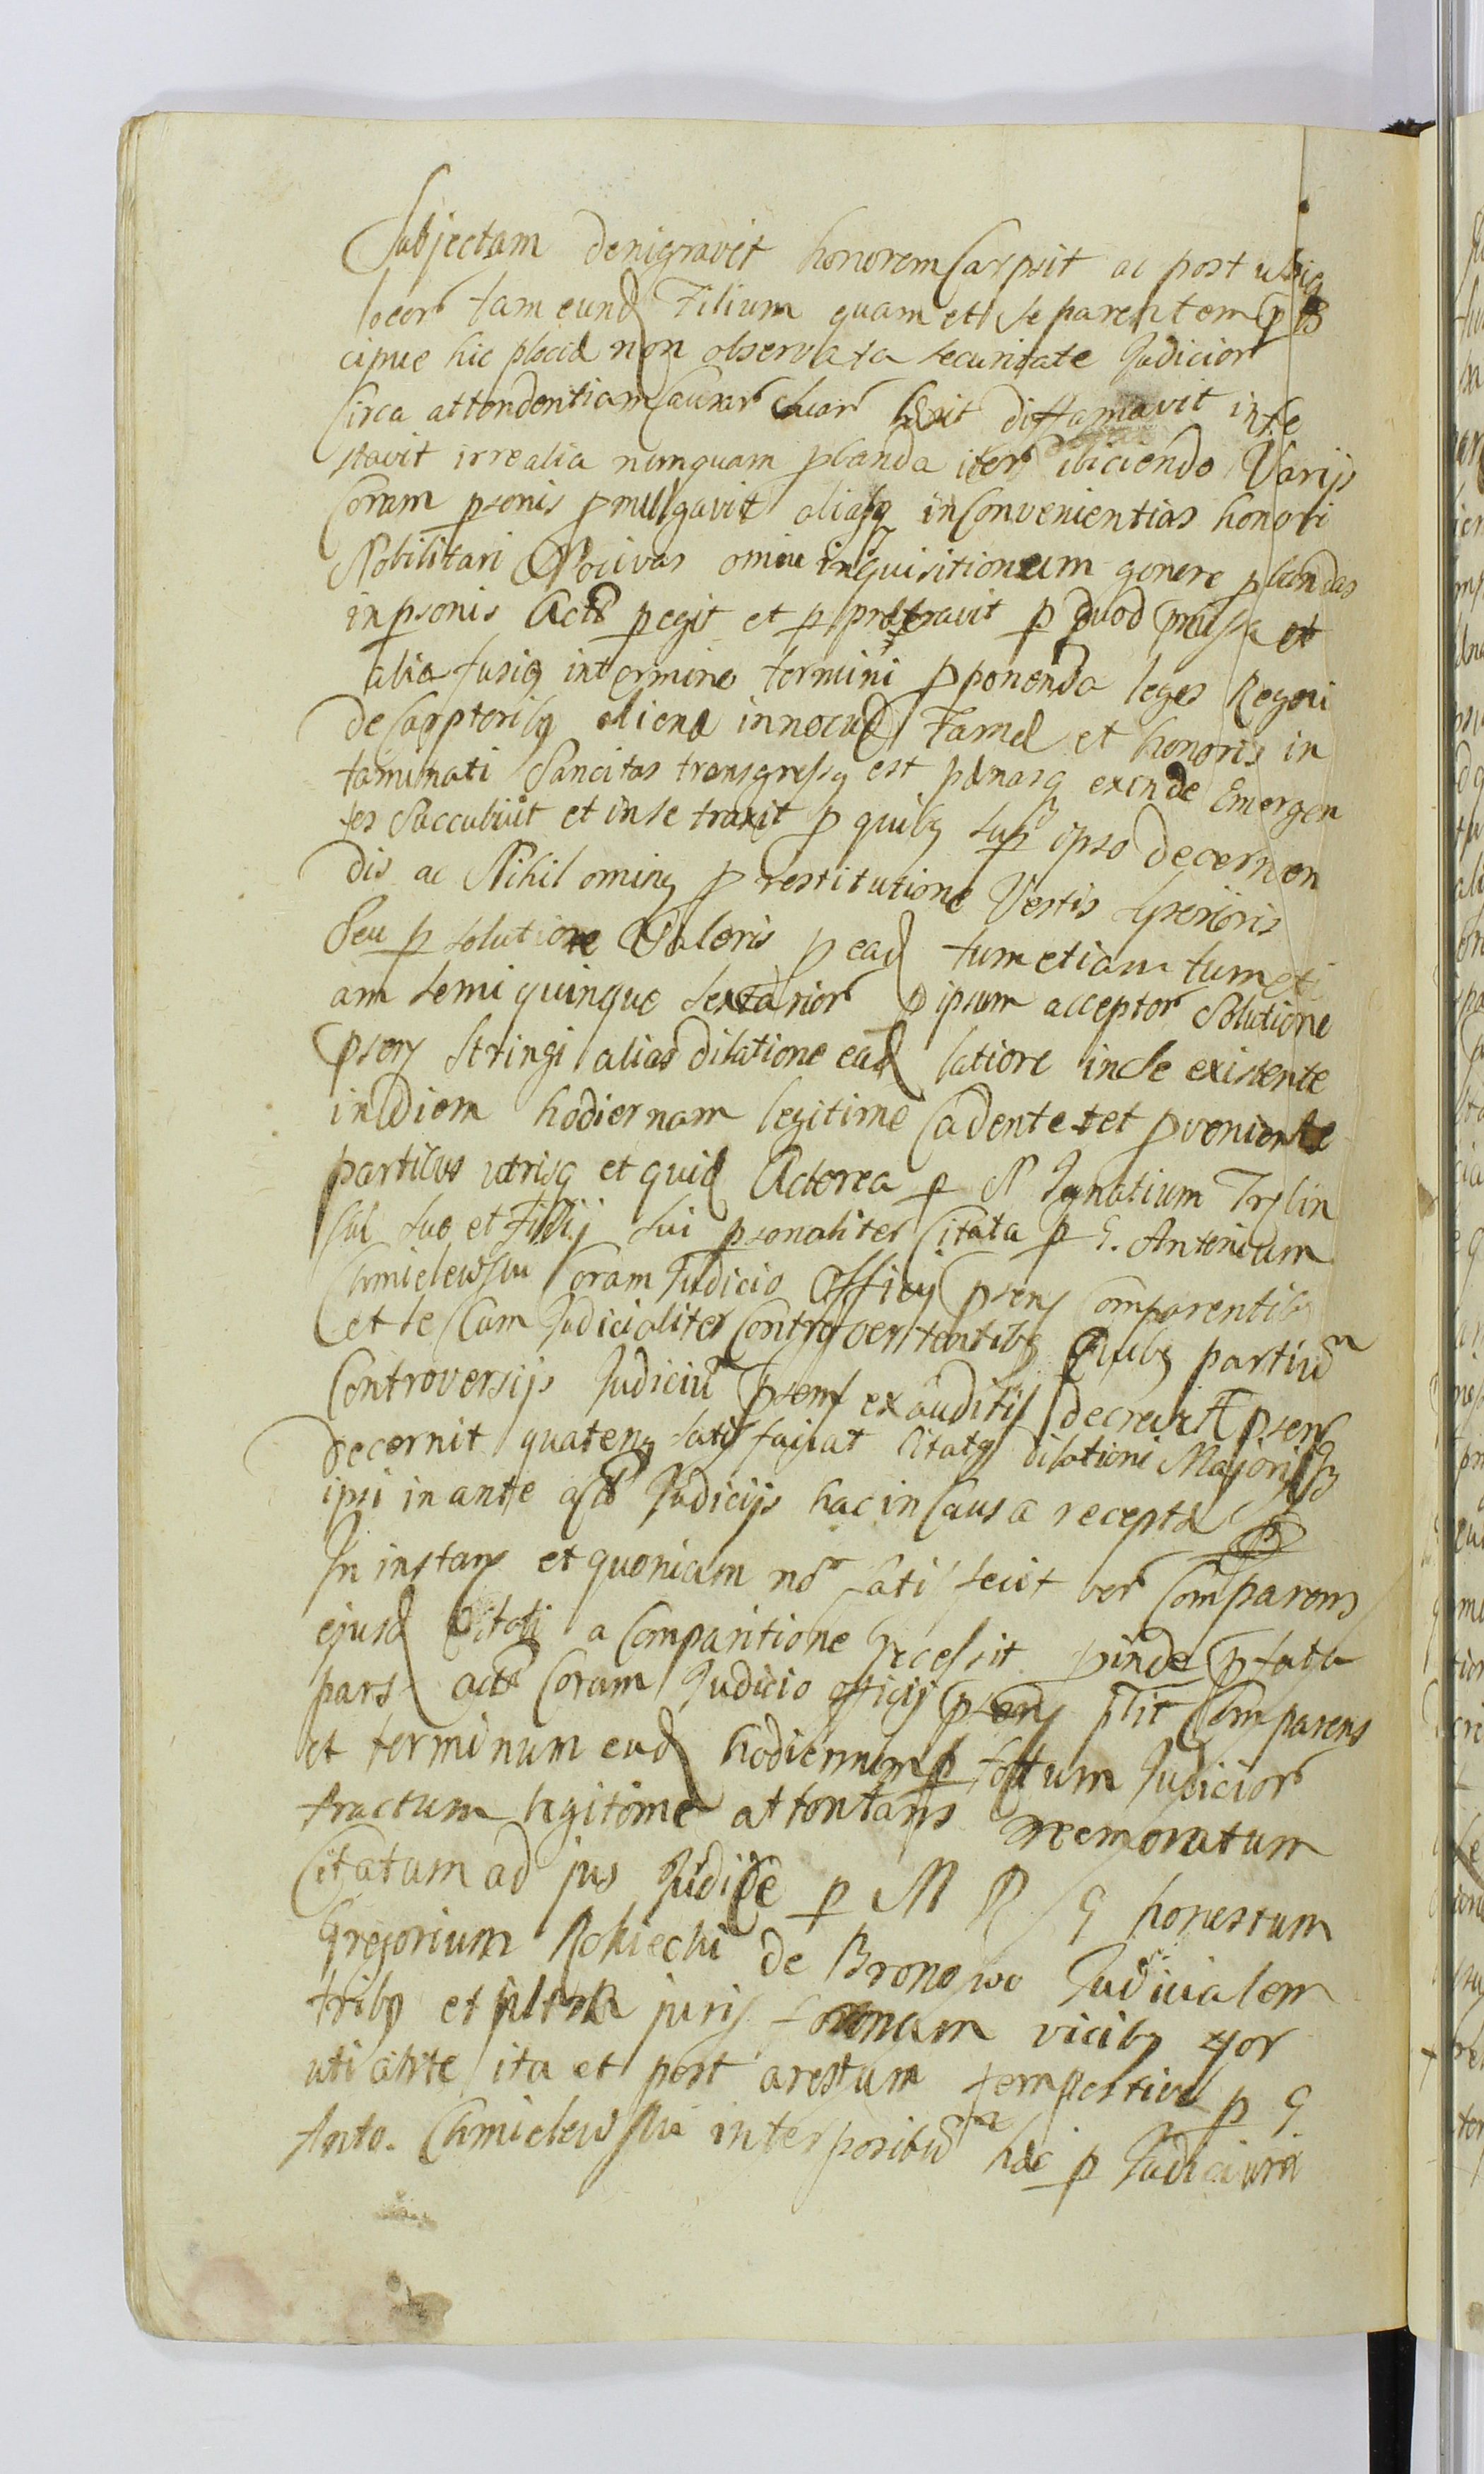 Subjectam denigravit honorem Carpsit ac post ubiq
locor tam eund Filium quam et se parentem
cipue hic Plociae non observata securitate Judicior
Circa attendentiam Causar suar diffamavit infe
stavit irrealia nunquam pbanda iter Varijs
Coram psonis pmulgavit aliasq inConvenientias honori
Nobilitari Nocivas omni inquisitionum genere pbandas
in psonis Actor pegit et p petravit p quod pmissa et
alia fusiq in termino termini pponenda leges Regni
de Carptoribq alienae innocuae Famae et honoris in
taminati Sancitas transgressq est paenasq exinde Emergen
tes Succubuit et in se traxit p quibq sup ipso decernen
dis ac Nihil ominq p restitutione Vestis
Seu p solutione Valoris p ead tum etiam tum eti
am semi quinque sextarior p ipsum acceptor Solutione
psens Stringi alias dilatione ead latiore in se existente
in diem hodiernam legitime Cadente et pveniente
partibus utrisq et quid Actorea p N Ignatium Trylin
ski suo et Filij sui psonaliter Citata p G. Antonium
Chmielewski Coram Judicio Officij psens Comparentibq
et se Cum Judicialiter Controvertentibq Quibq partium
Controversijs Judiciu psens exauditis decrevit psens
decernit quatenq satisfaciat Citatq dilationi Majori
ipsi in ante actis Judicijs hac in Causa recepta
In instans et quoniam no satisfecit ver Comparens
ejusd Citati a Comparitione recessit pinde pfata
pars actor Coram Judicio officij psens ptit Comparens
et terminum eud hodiernum p tottum Judicior
tractum legitime attentans memoratum
Citatum ad jus Judice p M R G honestum
Gregorium Rokiecki de Bronowo Judicialem
tribq et ultra juris formam vicibq
uti ante ita et post arestum tempestive p G
Anto. Chmielewski interpositu hac p Judicium